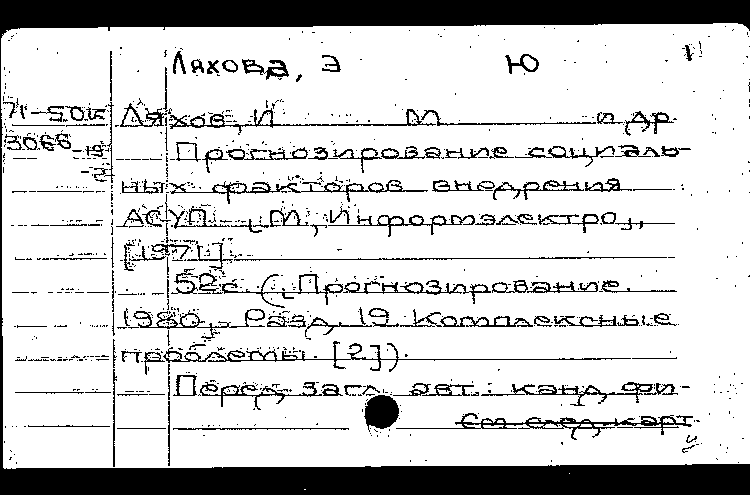 Ляхова, Э Ю
71-50к Ляхов, И М и др.
3066 Прогнозирование социаль-
ных факторов внедрения
АСУП. [М., Информэлектро],
[1971].
52с. ([Прогнозирование.
1980, Разд. 19. Комплексные
проблемы. [2]).
Перед. загл. авт.: канд. фи-
См след. карт.